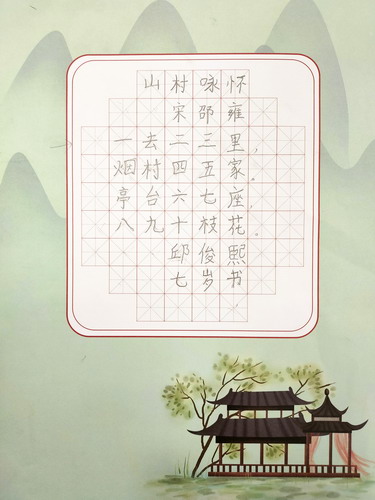 山村咏怀
宋邵雍
一去二三里，
烟村四五家。
亭台六七座，
八九十枝花。
邱俊熙
七岁书